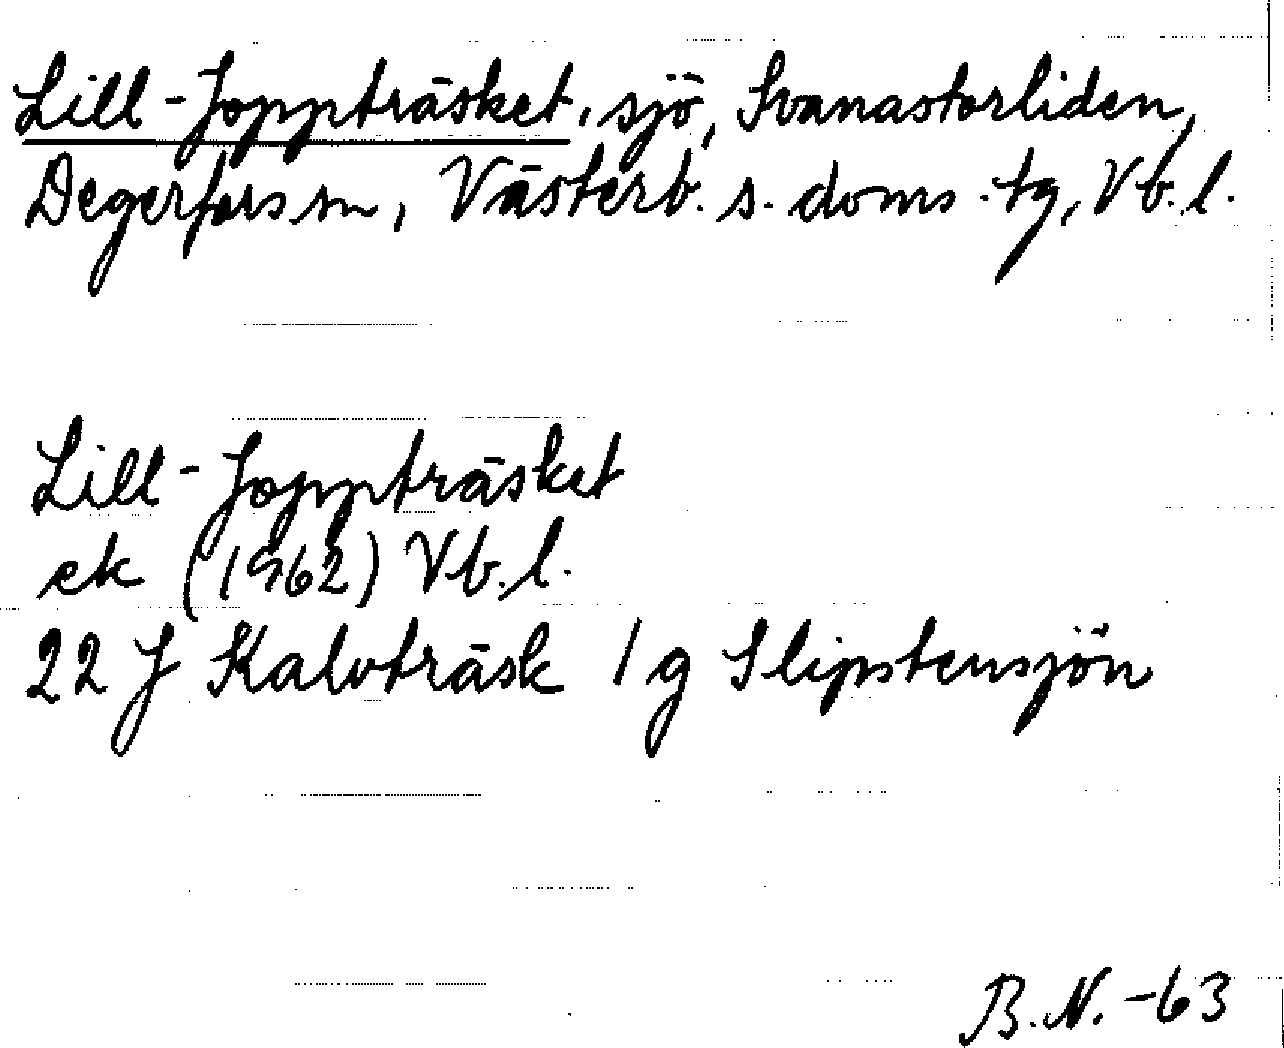 Lill-Joppträsket, sjö, Svanastorliden,
Degerfors sn, Västerb. s. doms.-tg, Vb. l.
Lill-Joppträsket
ek (1962) Vb. l.
22 J Kalvträsk 1 g Slipstensjön
B. N. -63